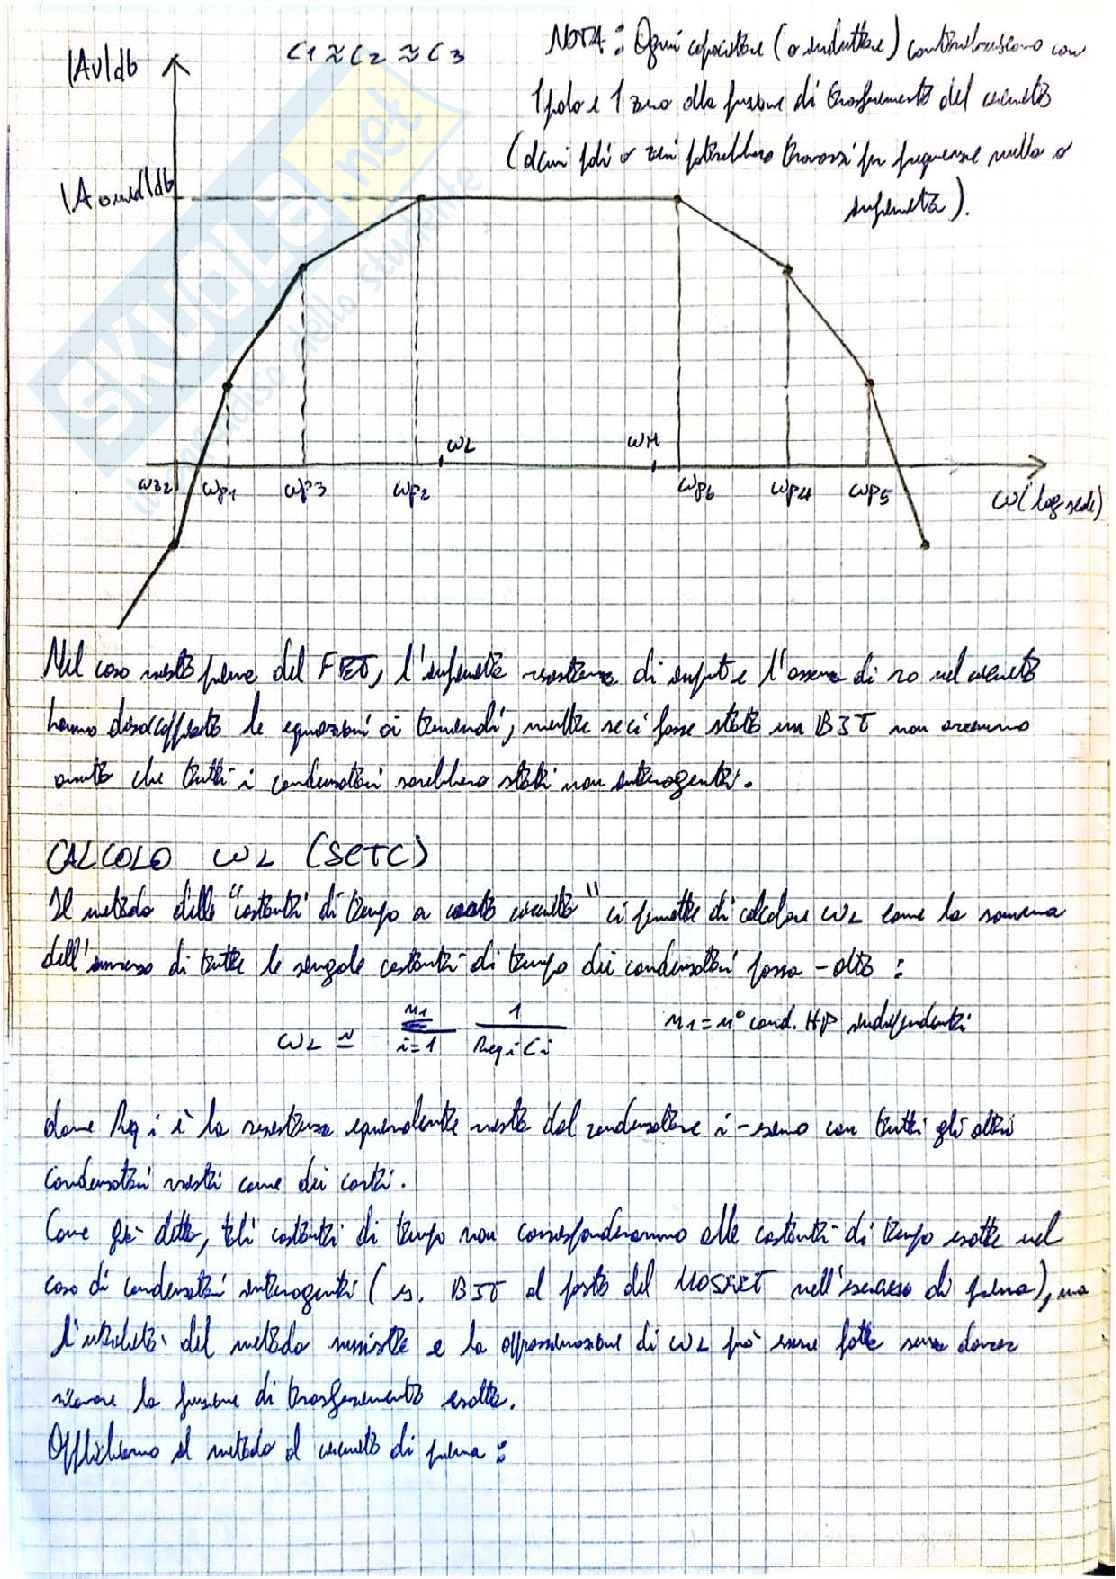 |Av|db
C1 ≈ C2 ≈ C3
NOTA: Ogni capacitore (o induttore) contribuiscono con
1 polo e 1 zero alla funzione di trasferimento del circuito
(alcuni poli o zeri potrebbero trovarsi per frequenze nulle o
infinita).
|Aomid|db
SKUOLA.net
ωL
ωH
ωz2 ωp1 ωp3 ωp2 ωp6 ωp4 ωp5
ω (log scale)
Nel caso visto prima del FET, l'infinita resistenza di input e l'assenza di ro nel circuito
hanno disaccoppiato le equazioni ai terminali, mentre se ci fosse stato un BJT non avremmo
avuto che tutti i condensatori sarebbero stati non interagenti.
CALCOLO ωL (SCTC)
Il metodo delle "costanti di tempo a corto circuito" ci permette di calcolare ωL come la somma
dell'inverso di tutte le singole costanti di tempo dei condensatori passa-alto:
ωL ≃ Σ i=1 n1 1 / Req i Ci
n1 = n° cond. HP indipendenti
dove Req i è la resistenza equivalente vista dal condensatore i-esimo con tutti gli altri
condensatori visti come dei corti.
Come già detto, tali costanti di tempo non corrisponderanno alle costanti di tempo esatte nel
caso di condensatori interagenti (es. BJT al posto del MOSFET nell'esercizio di prima), ma
l'utilità del metodo sussiste e la approssimazione di ωL può essere fatta senza dover
ricavare la funzione di trasferimento esatta.
Applichiamo il metodo al circuito di prima: